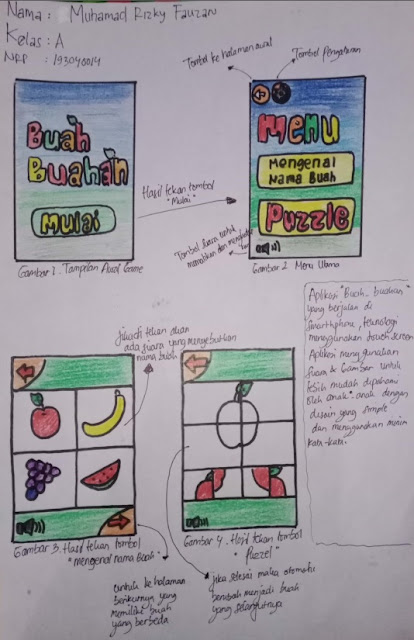 Nama : Muhamad Rizky Fauzan
Kelas : A
NRP : 193040014
Tombol ke halaman awal
Tombol Pengaturan
Buah
Buahan
Mulai
Menu
Mengenal
Nama Buah
Puzzle
Hasil tekan tombol
"Mulai"
Tombol suara untuk
mematikan dan
Gambar 1. Tampilan Awal Game
Gambar 2. Menu Utama
Aplikasi "Buah-buahan"
yang berjalan di
smartphone, teknologi
menggunakan touch screen
Aplikasi menggunakan
suara & Gambar untuk
lebih mudah dipahami
oleh anak"-anak dengan
desain yang simple
dan menggunakan minim
kata-kata.
jika di tekan akan
ada suara yang menyebutkan
nama buah
Gambar 3. Hasil tekan tombol
"mengenal nama Buah"
Gambar 4. Hasil tekan tombol
"Puzzel"
untuk ke halaman
berikutnya yang
memiliki buah
yang berbeda
jika selesai maka otomatis
berubah menjadi buah
yang selanjutnya